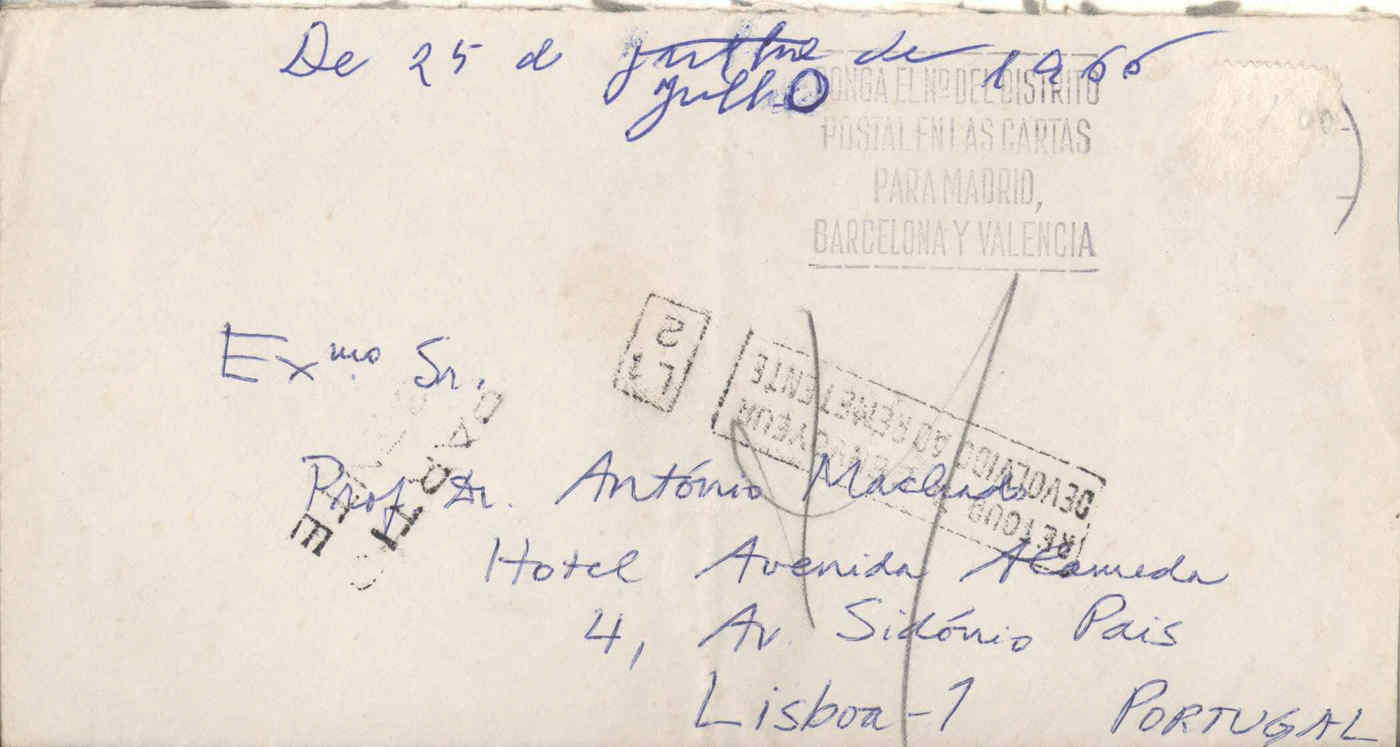 De 25 d julho de 1966
julho
PONGA EL Nº DEL DISTRITO
POSTAL EN LAS CARTAS
PARA MADRID,
BARCELONA Y VALENCIA
Exmo Sr.
L 1
2
RETOUR À L'ENVOYEUR
DEVOLVIDO AO REMETENTE
Prof. Dr. António Machado
Hotel Avenida Alameda
4, Av. Sidónio Pais
Lisboa-1 PORTUGAL